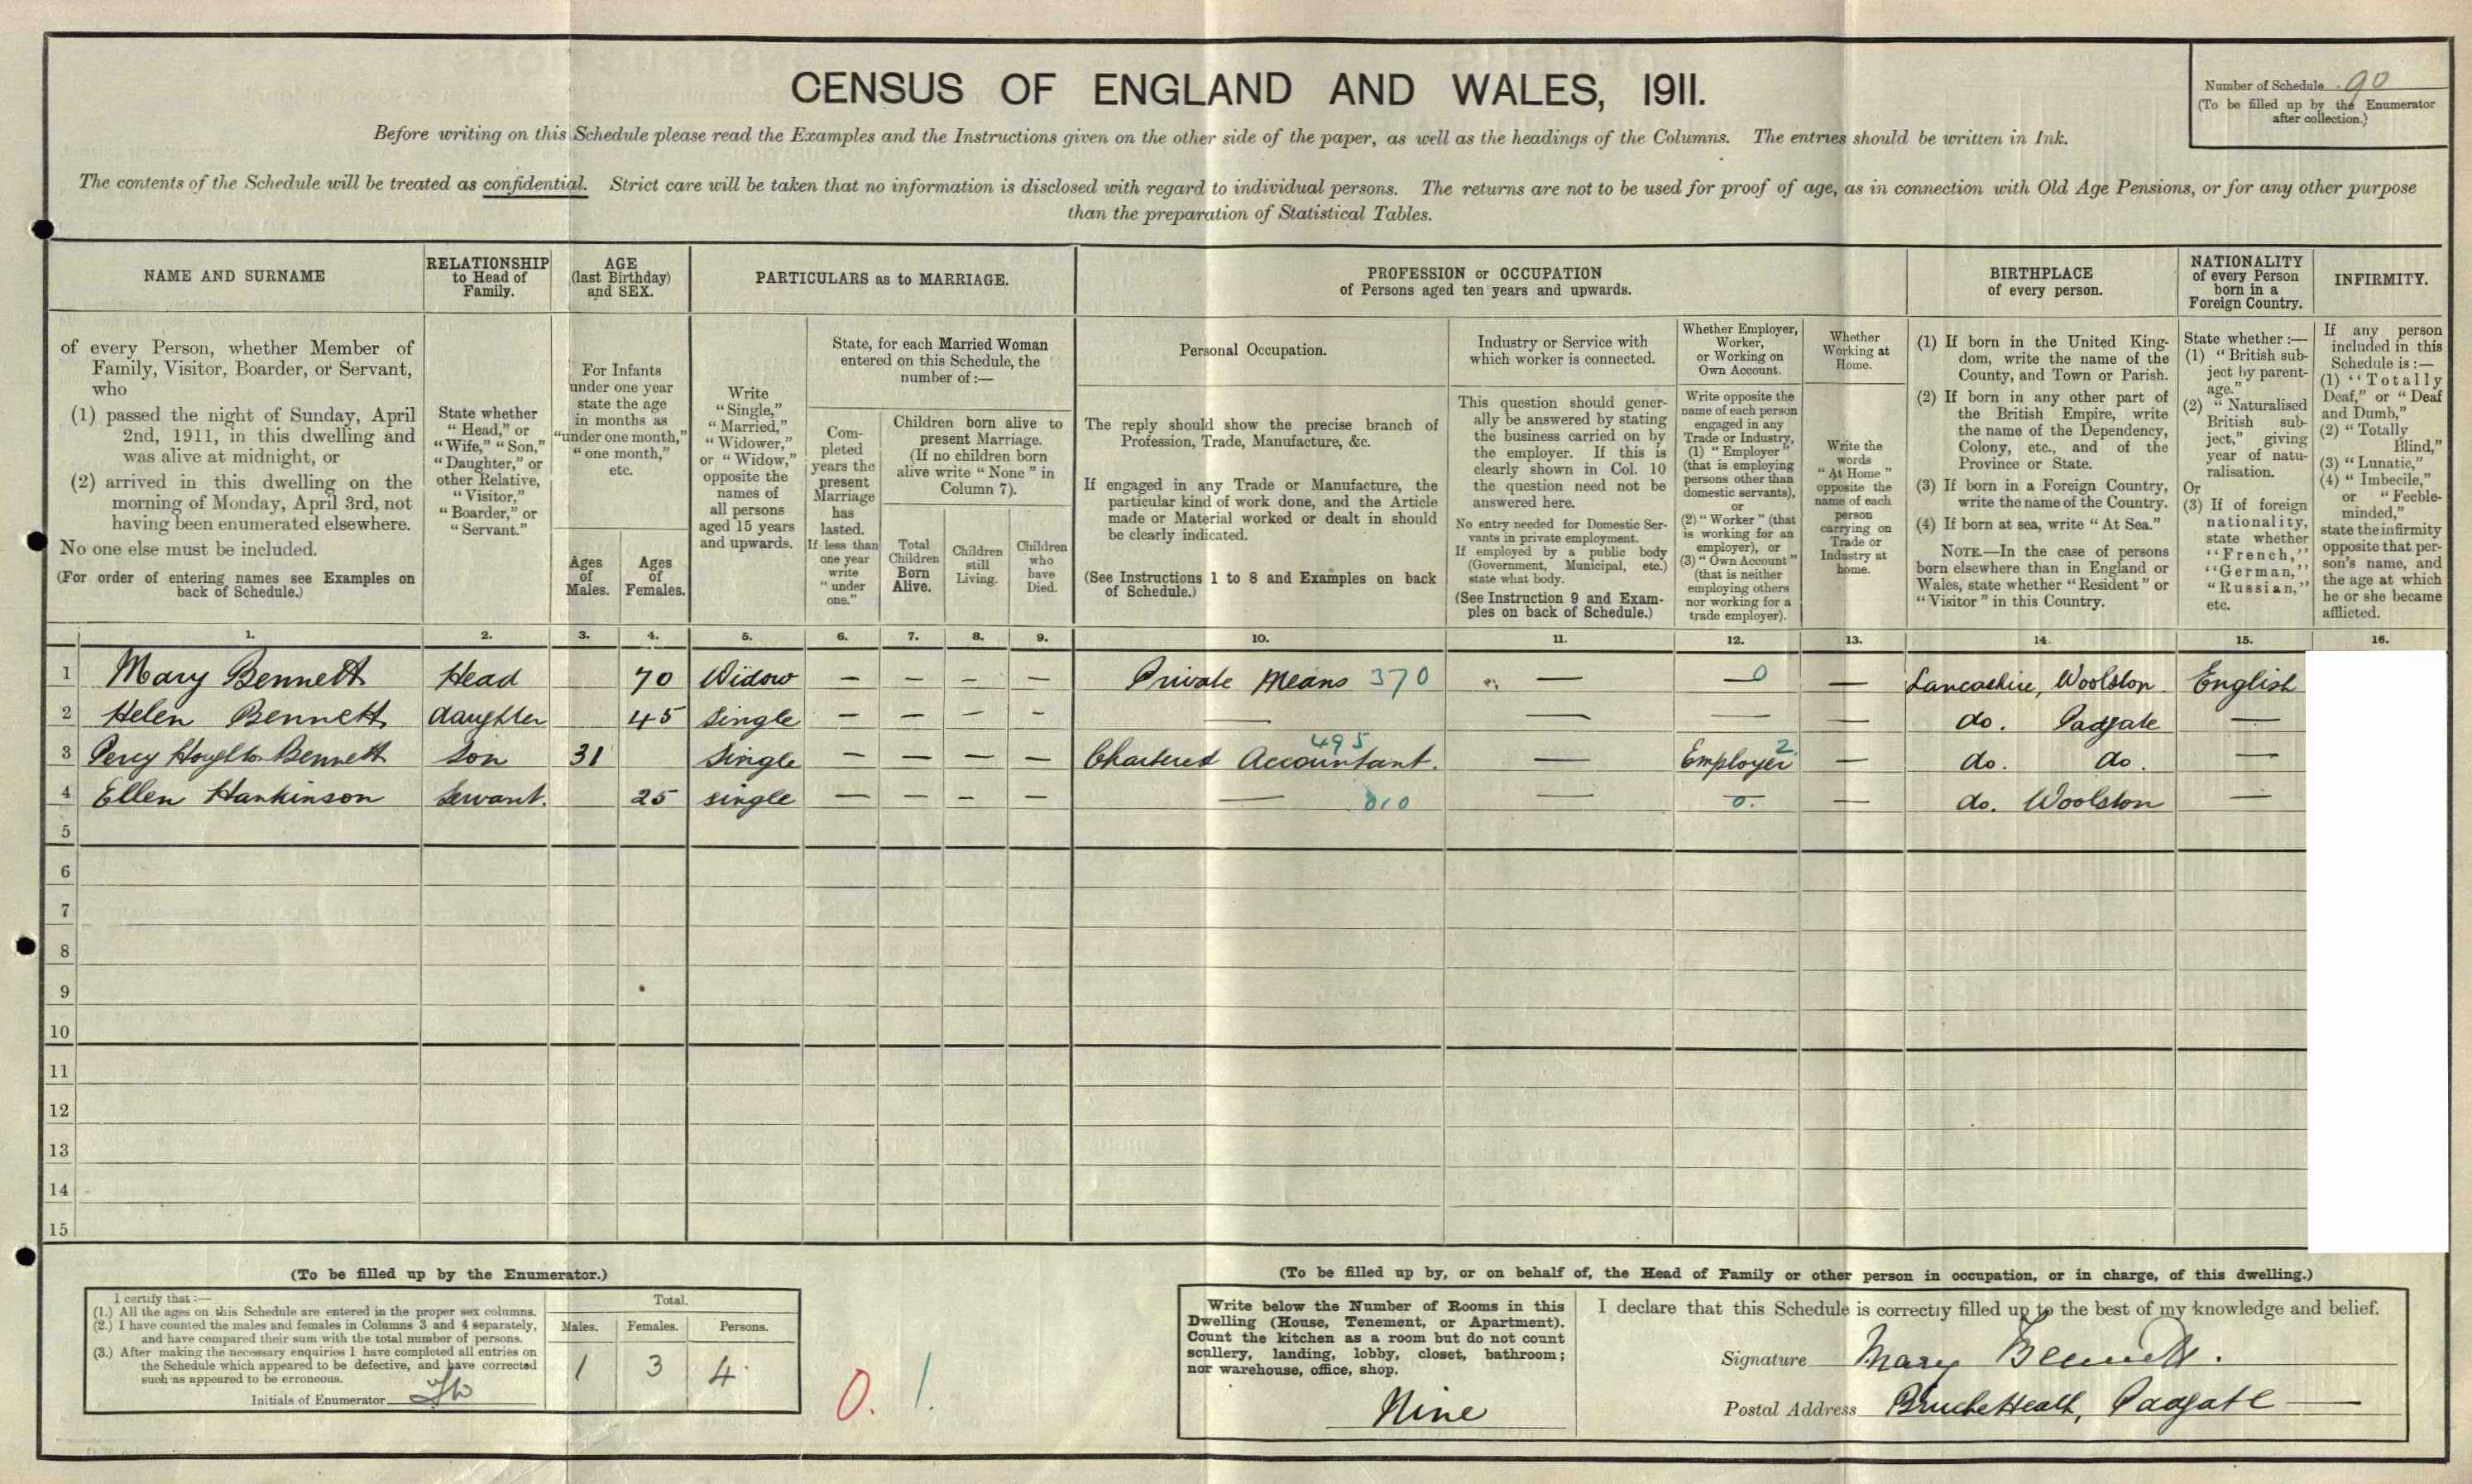 CENSUS OF ENGLAND AND WALES, 1911.
Number of Schedule 90
(To be filled up by the Enumerator
after collection.)
Before writing on this Schedule please read the Examples and the Instructions given on the other side of the paper, as well as the headings of the Columns. The entries should be written in Ink.
The contents of the Schedule will be treated as confidential. Strict care will be taken that no information is disclosed with regard to individual persons. The returns are not to be used for proof of age, as in connection with Old Age Pensions, or for any other purpose
than the preparation of Statistical Tables.
NAME AND SURNAME
of every Person, whether Member of
Family, Visitor, Boarder, or Servant,
who
(1) passed the night of Sunday, April
2nd, 1911, in this dwelling and
was alive at midnight, or
(2) arrived in this dwelling on the
morning of Monday, April 3rd, not
having been enumerated elsewhere.
No one else must be included.
(For order of entering names see Examples on
back of Schedule.)
RELATIONSHIP
to Head of
Family.
State whether
"Head," or
"Wife," "Son,"
"Daughter," or
other Relative,
"Visitor,"
"Boarder," or
"Servant."
AGE
(last Birthday)
and SEX.
For Infants
under one year
state the age
in months as
"under one month,"
"one month,"
etc.
Ages
of
Males.
Ages
of
Females.
PARTICULARS as to MARRIAGE.
Write
"Single,"
"Married,"
"Widower,"
or "Widow,"
opposite the
names of
all persons
aged 15 years
and upwards.
State, for each Married Woman
entered on this Schedule, the
number of:—
Com-
pleted
years the
present
Marriage
has
lasted.
If less than
one year
write
"under
one."
Children born alive to
present Marriage.
(If no children born
alive write "None" in
Column 7).
Total
Children
Born
Alive.
Children
still
Living.
Children
who
have
Died.
PROFESSION or OCCUPATION
of Persons aged ten years and upwards.
Personal Occupation.
The reply should show the precise branch of
Profession, Trade, Manufacture, &c.
If engaged in any Trade or Manufacture, the
particular kind of work done, and the Article
made or Material worked or dealt in should
be clearly indicated.
(See Instructions 1 to 8 and Examples on back
of Schedule.)
Industry or Service with
which worker is connected.
This question should gener-
ally be answered by stating
the business carried on by
the employer. If this is
clearly shown in Col. 10
the question need not be
answered here.
No entry needed for Domestic Ser-
vants in private employment.
If employed by a public body
(Government, Municipal, etc.)
state what body.
(See Instruction 9 and Exam-
ples on back of Schedule.)
Whether Employer,
Worker,
or Working on
Own Account.
Write opposite the
name of each person
engaged in any
Trade or Industry,
(1) "Employer"
(that is employing
persons other than
domestic servants),
or
(2) "Worker" (that
is working for an
employer), or
(3) "Own Account"
(that is neither
employing others
nor working for a
trade employer).
Whether
Working at
Home.
Write the
words
"At Home"
opposite the
name of each
person
carrying on
Trade or
Industry at
home.
BIRTHPLACE
of every person.
(1) If born in the United King-
dom, write the name of the
County, and Town or Parish.
(2) If born in any other part of
the British Empire, write
the name of the Dependency,
Colony, etc., and of the
Province or State.
(3) If born in a Foreign Country,
write the name of the Country.
(4) If born at sea, write "At Sea."
NOTE.—In the case of persons
born elsewhere than in England or
Wales, state whether "Resident" or
"Visitor" in this Country.
NATIONALITY
of every Person
born in a
Foreign Country.
State whether:—
(1) "British sub-
ject by parent-
age."
(2) "Naturalised
British sub-
ject," giving
year of natu-
ralisation.
Or
(3) If of foreign
nationality,
state whether
"French,"
"German,"
"Russian,"
etc.
INFIRMITY.
If any person
included in this
Schedule is:—
(1) "Totally
Deaf," or "Deaf
and Dumb,"
(2) "Totally
Blind,"
(3) "Lunatic,"
(4) "Imbecile,"
or "Feeble-
minded,"
state the infirmity
opposite that per-
son's name, and
the age at which
he or she became
afflicted.
1. 2. 3. 4. 5. 6. 7. 8. 9. 10. 11. 12. 13. 14. 15. 16.
1 Mary Bennett Head 70 Widow — — — — Private Means 370 — 0 — Lancashire, Woolston. English
2 Helen Bennett daughter 45 single — — — — — — — — do. Padgate —
3 Percy Houghton Bennett Son 31 Single — — — — Chartered Accountant. 495 — Employer 2. — do. do. —
4 Ellen Hankinson Servant. 25 single — — — — — 010 — 0. — do. Woolston —
5
6
7
8
9
10
11
12
13
14
15
(To be filled up by the Enumerator.)
I certify that:—
(1.) All the ages on this Schedule are entered in the proper sex columns.
(2.) I have counted the males and females in Columns 3 and 4 separately,
and have compared their sum with the total number of persons.
(3.) After making the necessary enquiries I have completed all entries on
the Schedule which appeared to be defective, and have corrected
such as appeared to be erroneous.
Initials of Enumerator
Total.
Males. Females. Persons.
1 3 4.
0. 1.
(To be filled up by, or on behalf of, the Head of Family or other person in occupation, or in charge, of this dwelling.)
Write below the Number of Rooms in this
Dwelling (House, Tenement, or Apartment).
Count the kitchen as a room but do not count
scullery, landing, lobby, closet, bathroom;
nor warehouse, office, shop.
Nine
I declare that this Schedule is correctly filled up to the best of my knowledge and belief.
Signature Mary Bennett.
Postal Address Bruche Heath, Padgate